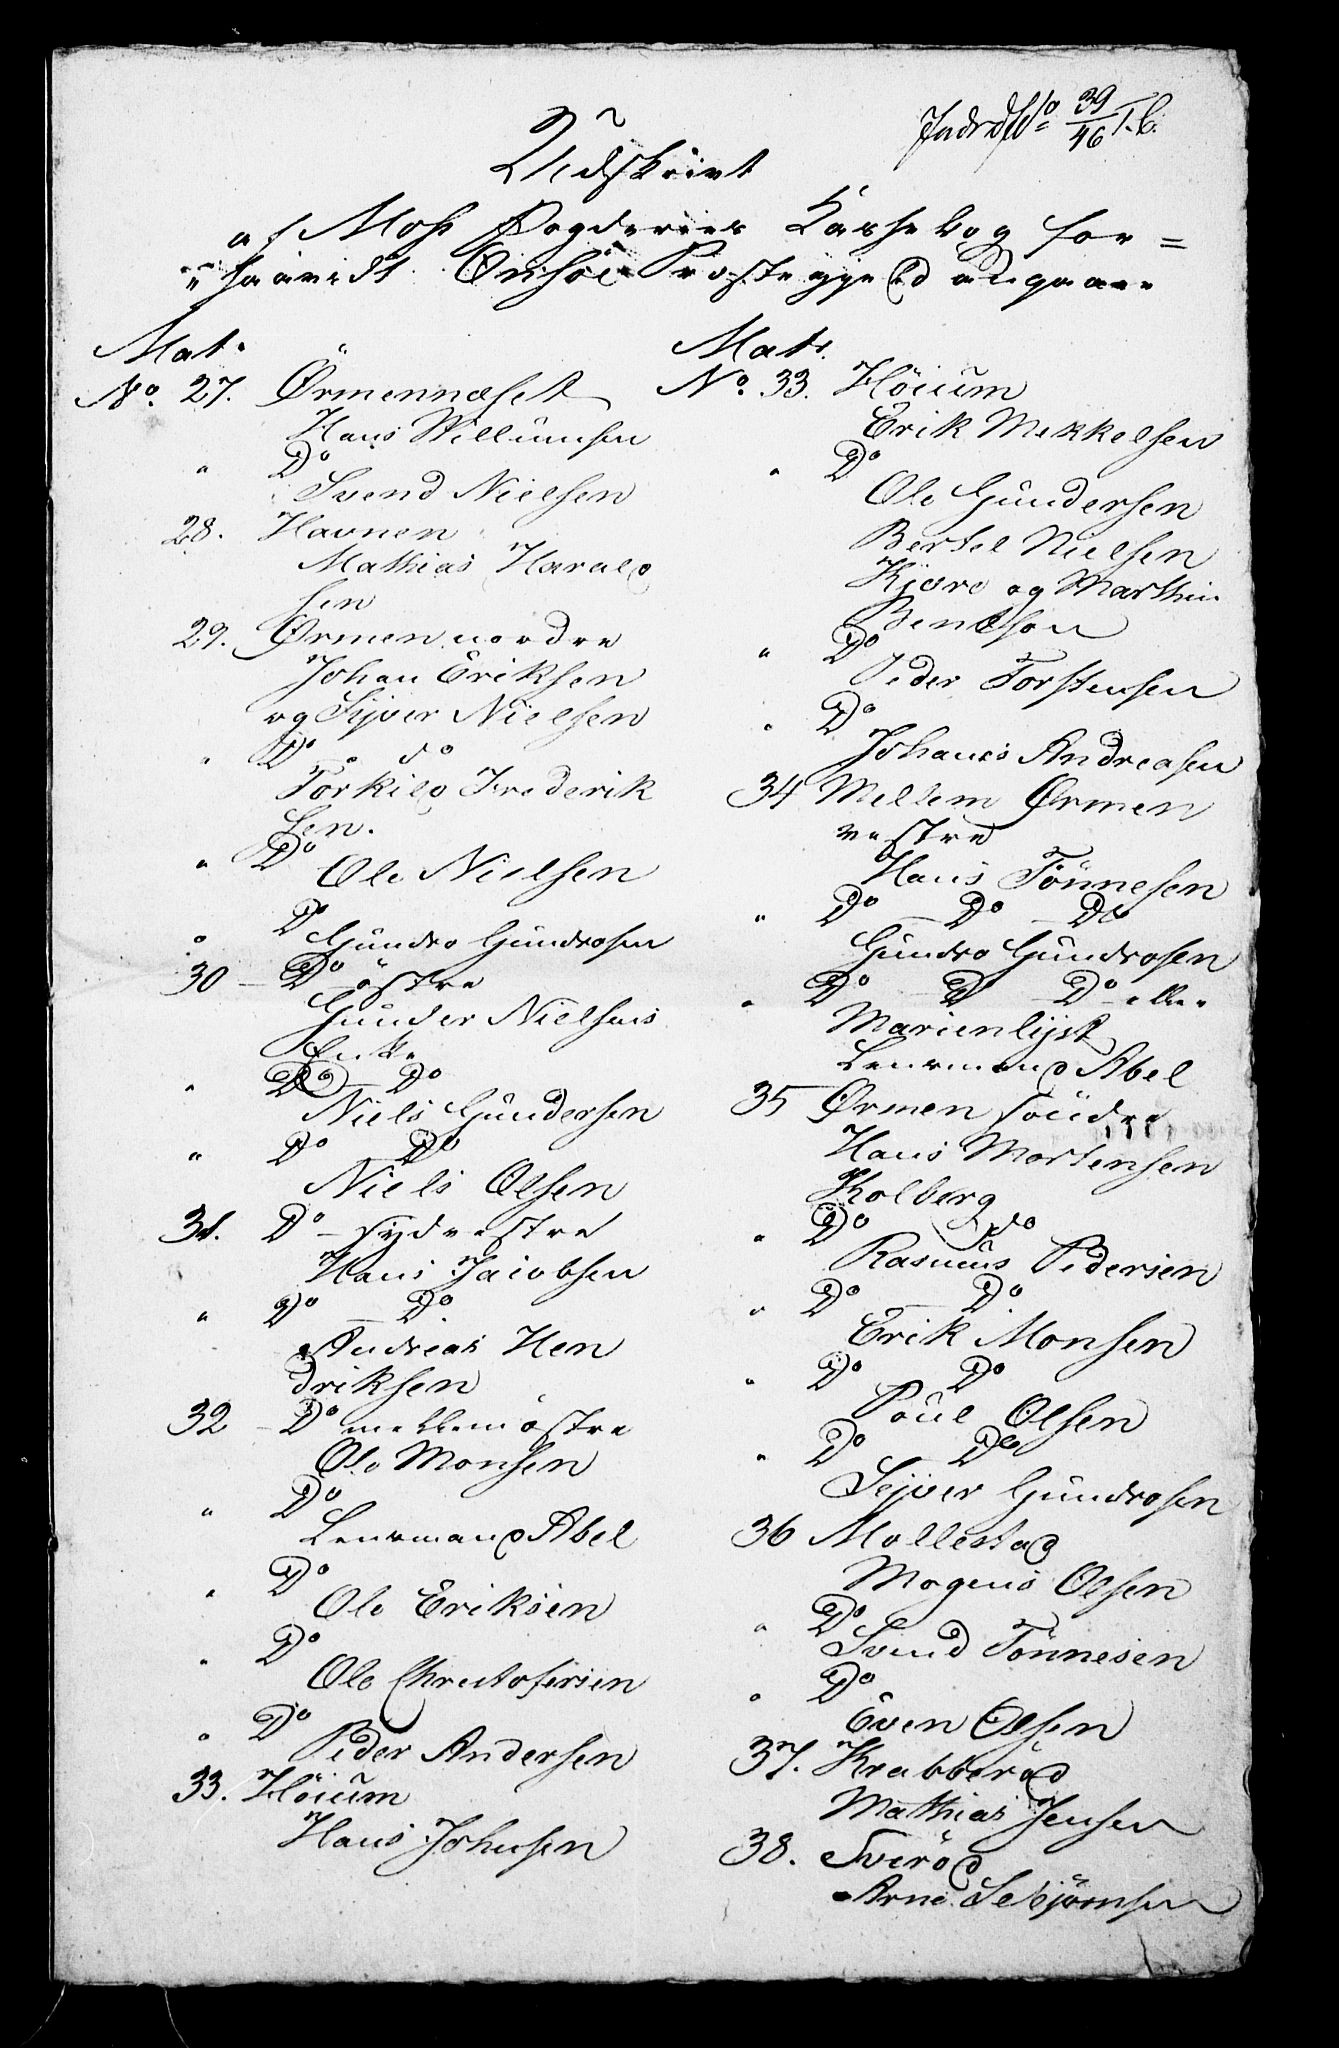 Indr: No 39/46 T.C.
Udskrivt
af Moss Fogderies Kassebog for=
"saavidt Onsöe Præstegjeld angaaer
Mat.
No. 27. Ørmennæset
Hans Willumsen
" Do
Svend Nielsen
28. Havnen
Mathias Harald
sen
29. Ørmen nordre
Johan Eriksen
og Sijver Nielsen
" Do do
Torkild Frederik
sen.
" Do
Ole Nielsen
" Do
Gundro Gundrosen
30 - Do östre
Gunder Nielsens
Enke
" Do Do
Niels Gundersen
" Do Do
Niels Olsen
31. Do - sydvestre
Hans Jacobsen
" Do Do
Andreas Hen
driksen
32 - Do mellem östre
Ole Monsen
" Do
Lensmand Abel
" Do
Ole Eriksen
" Do
Ole Christofersen
" Do
Peder Andersen
33. Höium
Hans Johnsen
Matr.
No. 33. Höium
Erik Mekkelsen
" Do
Ole Gundersen
Bertel Nielsen
Kjære og Marthin
Bentson
" Do
Peder Torstensen
" Do
Johanes Andreasen
34 Mellem Ørmen
vestre
Hans Tönnesen
" Do - Do - Do
Gundro Gundrosen
" Do - Do - Do - eller
Marienlyst
Lensmand Abel
35 Ørmen söndre
Hans Mortensen
Kolberg
" Do do
Rasmus Pedersen
" Do - Do
Erik Monsen
" Do Do
Poul Olsen
" Do Do
Sejver Gundrosen
36 Mollestad
Mogens Olsen
" Do
Svend Tönnesen
" Do
Even Olsen
37. Krabberöd
Mathias Jensen
38. Tveröd
Arne Sebjörnsen